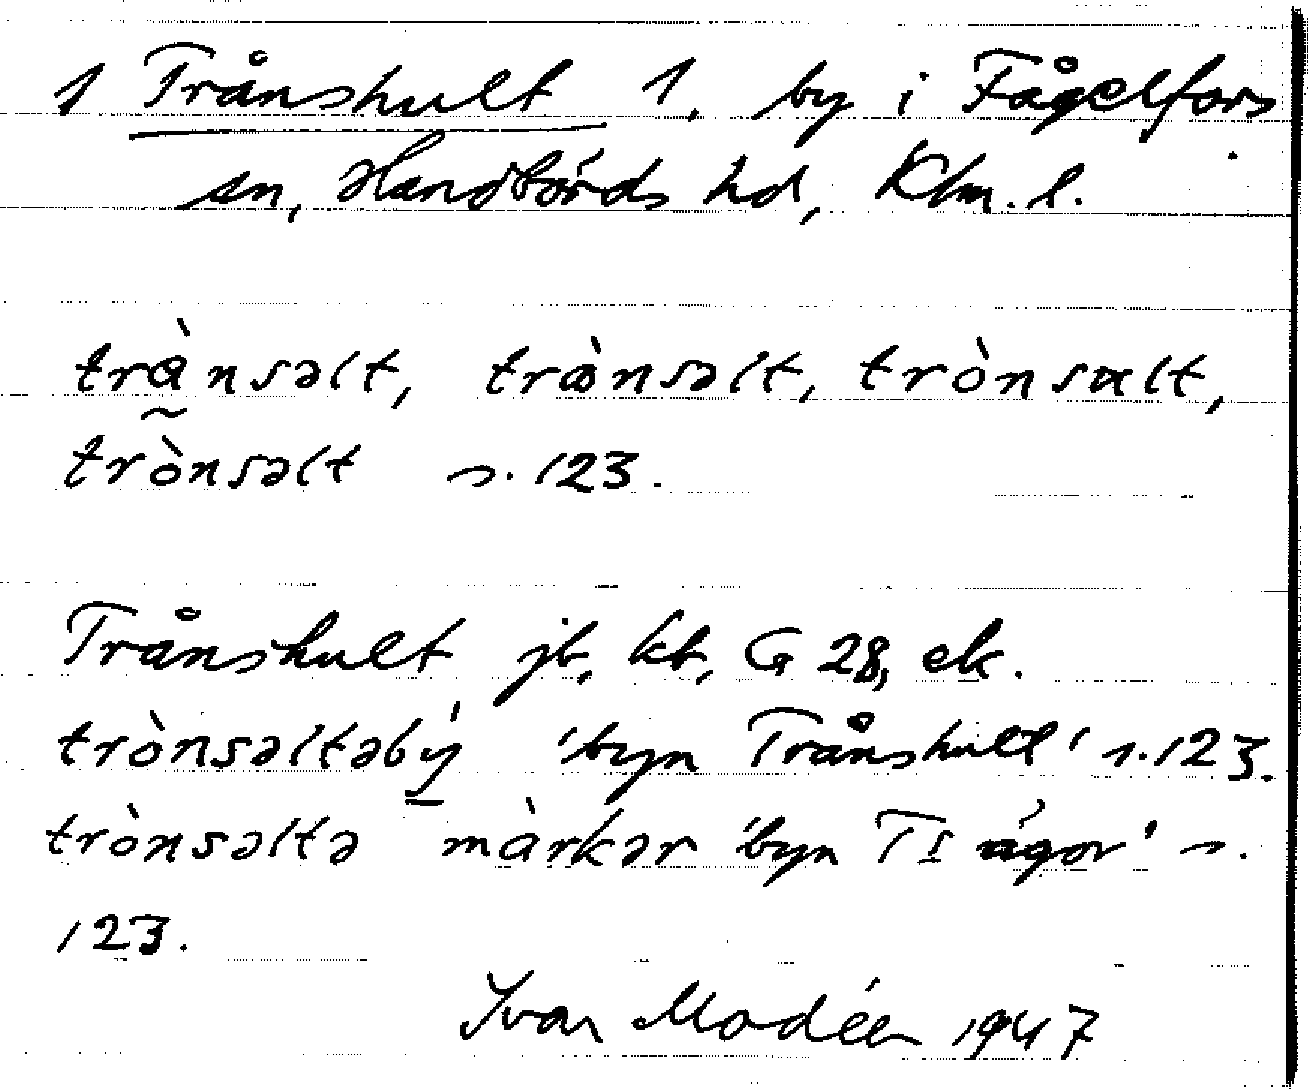 1 Trånshult 1. by i Fågelfors
sn, Handbörds hd, Klm. l.
trànsəlt, trånsəlt, trònsalt,
trònsəlt s. 123.
Trånshult jb, kb, G 28, ek.
trònsəltəbý 'byn Trånshult' s. 123.
trònsəltə màrkər 'byn Ts ägor' s.
123.
Ivar Modéer 1947